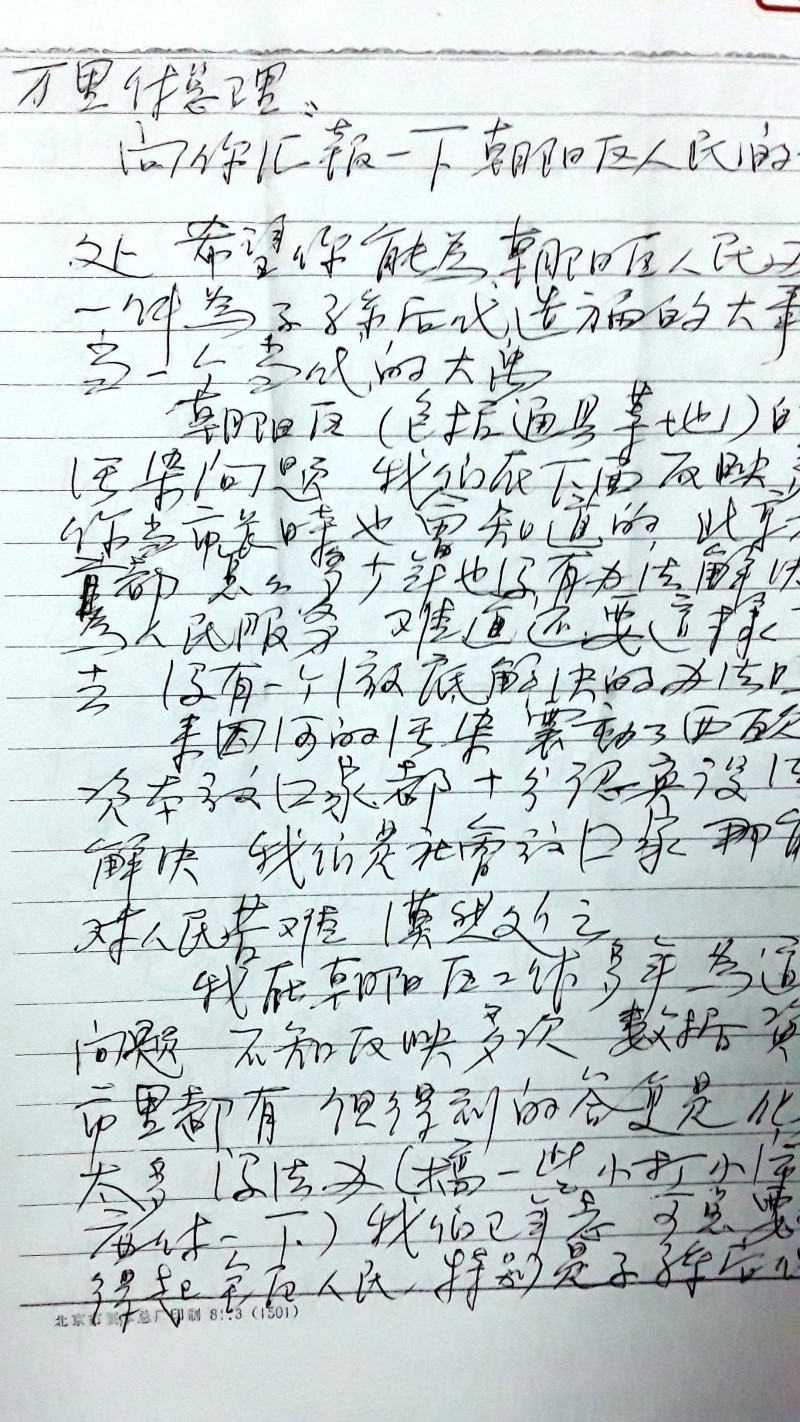 万里付总理：
向你汇报一下朝阳区人民的
处 希望你能为朝阳区人民办
一件为子子孙后代造福的大事
当一个当代的大禹
朝阳区（包括通县草地）的
污染问题 我们在下面反映多
你当市长时也会知道的 此
首都 怎么多少年也没有办法解决
为人民服务 难道还要这样
去 没有一个彻底解决的办法
来因河的污染 震动了西欧
资本主义国家都十分认真设法
解决 我们是社会主义国家 那能
对人民苦难 漠然处之
我在朝阳区工作多年 为这
问题 不知反映多次 数据 资
市里都有 但得到的答复是 化
太多 没法办（搞一些小打小
应付一下）我们已年老 可总要
得起全区人民，特别是子孙后代
北京市 总厂印制 8 .3 (1501)